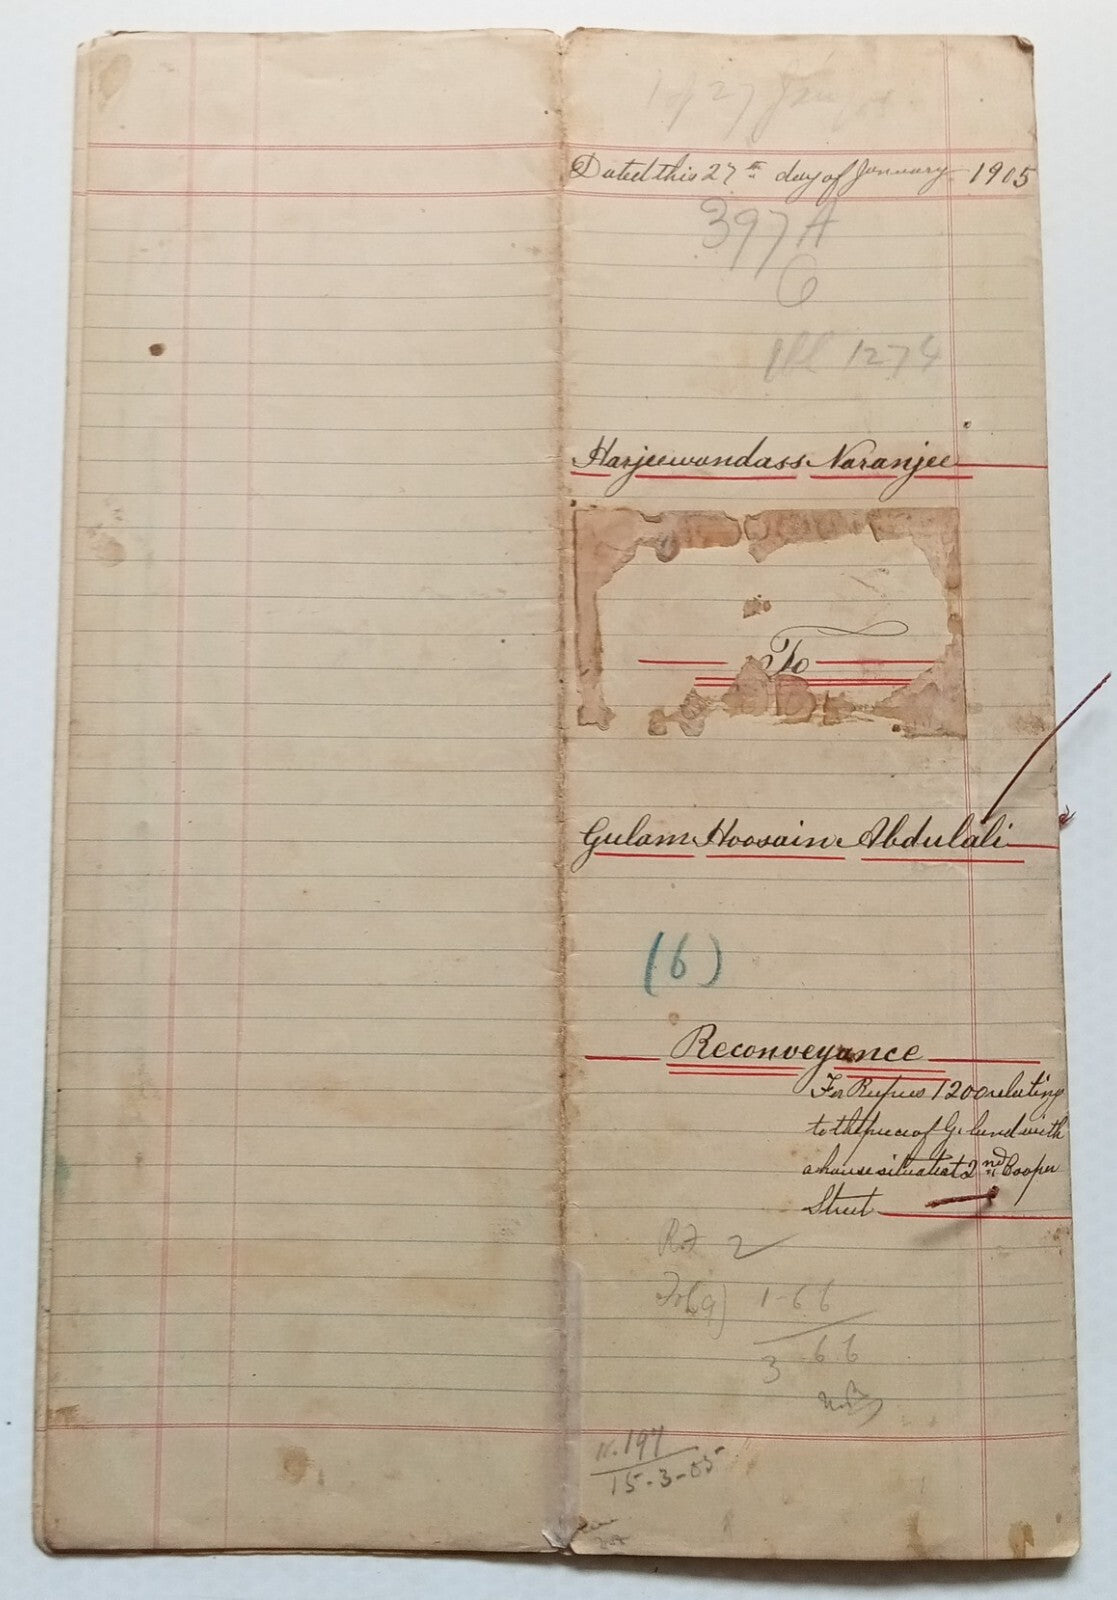 Dated this 27th day of January 1905
397 A
6
1274
Harjeewandass Naranjee
To
Gulam Hoosain Abdulali
(6)
Reconveyance
For Rupees 1200 relating
to the piece of G. land with
a house situate at 2nd Cooper
Street
2
1-66
3 66
197
15-3-05